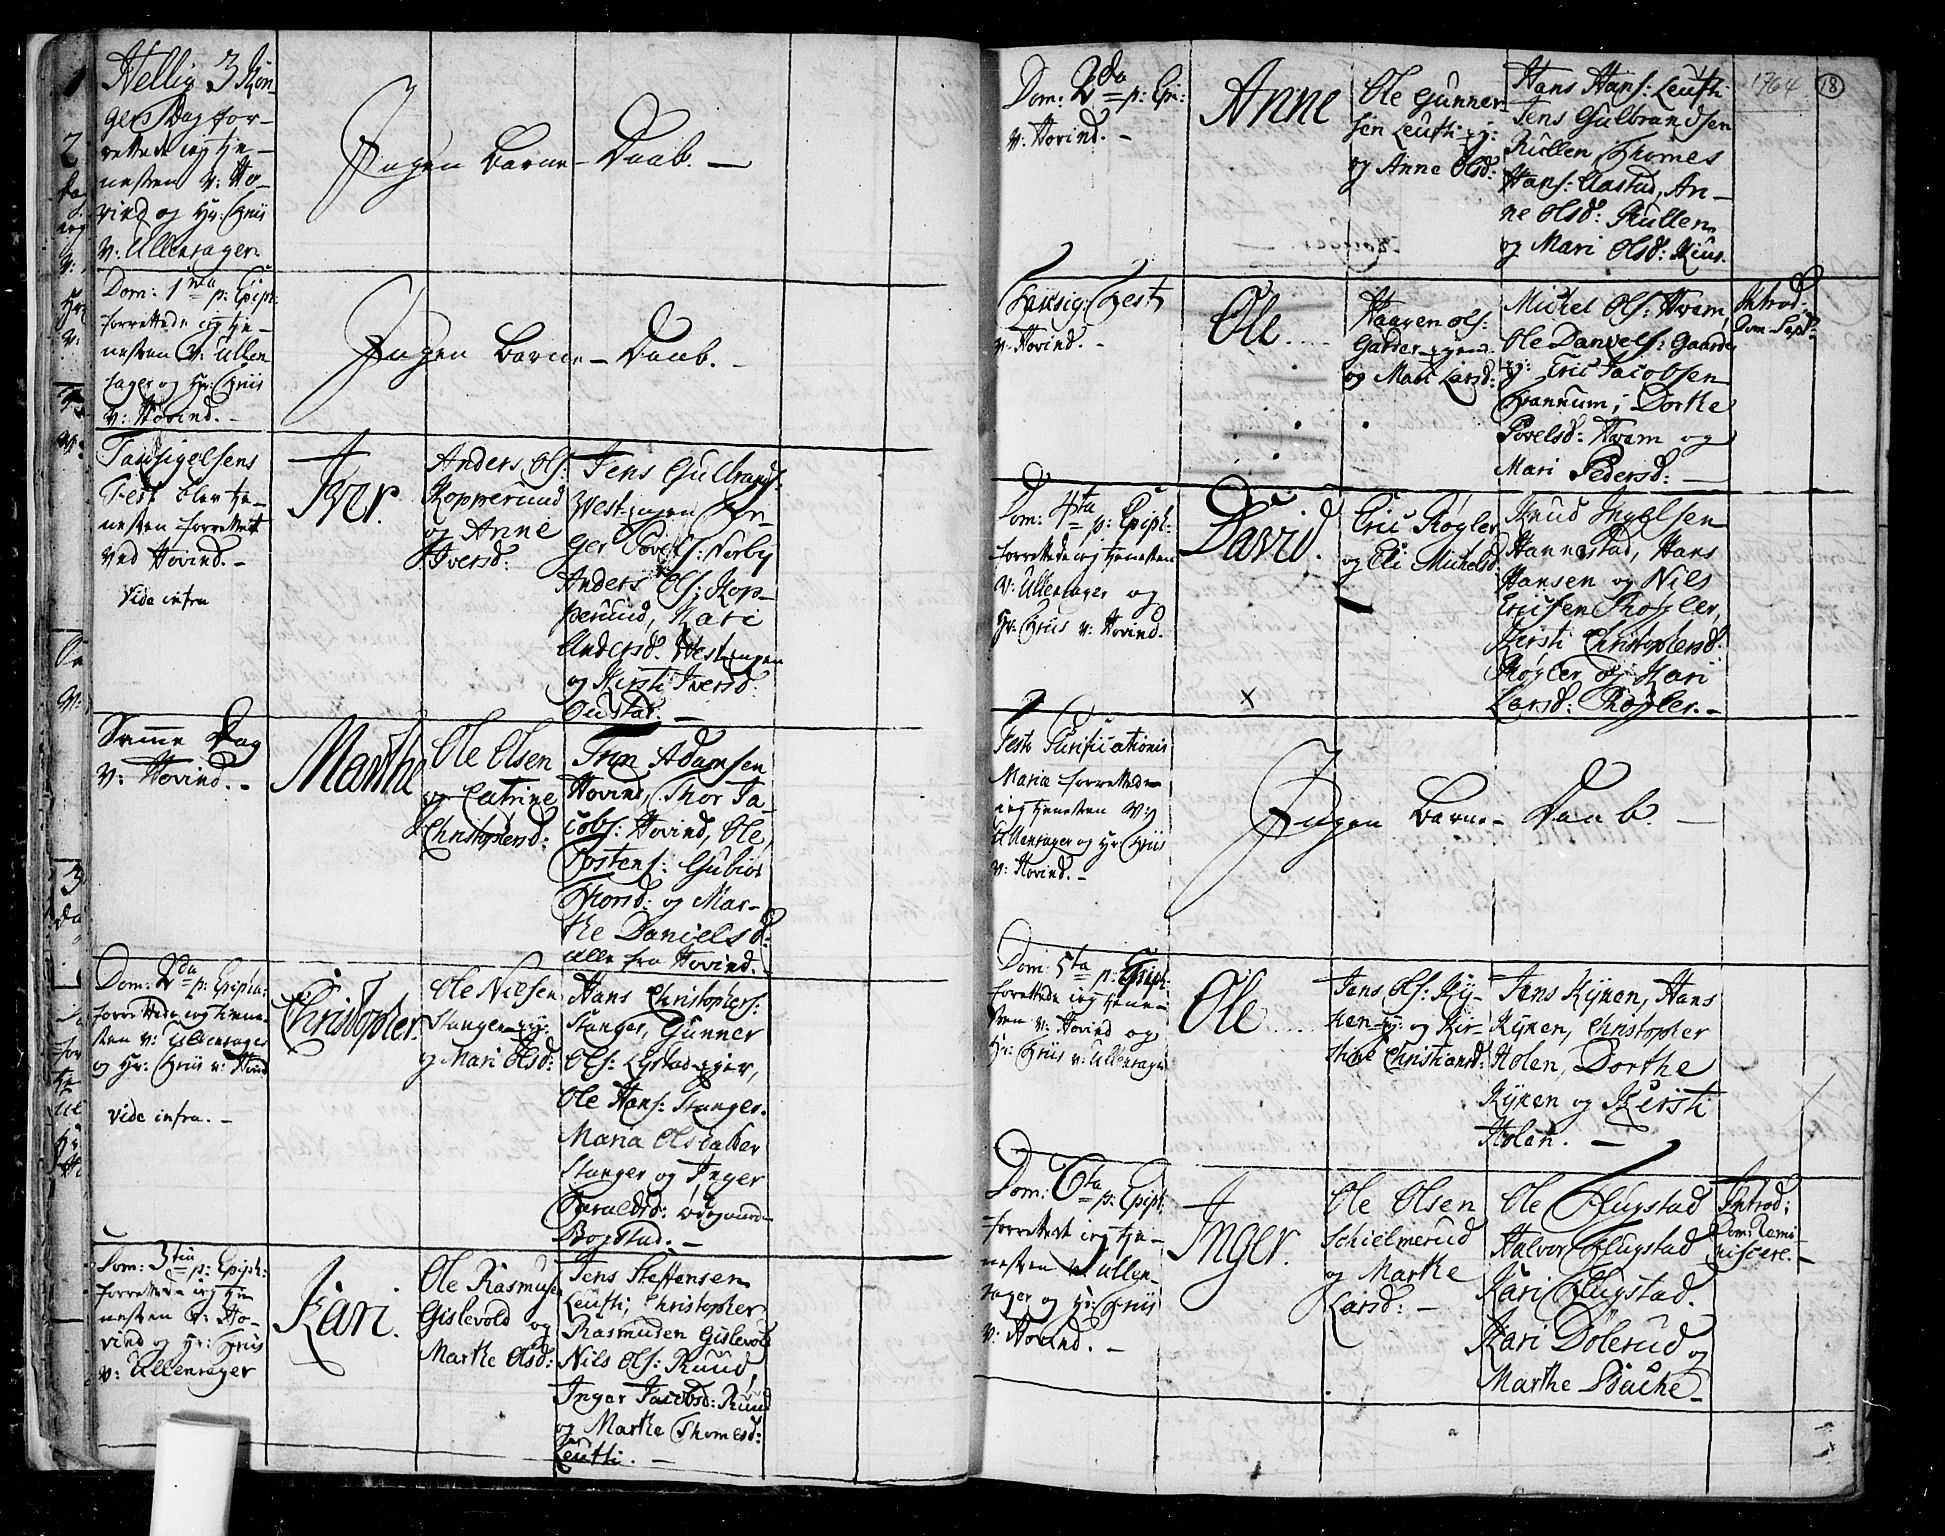 Hellig 3 Kon-
gers Dag for-
rettede ieg tje-
nesten v: Ho-
vind og Hr: Friis
v: Ullensager.
Ingen Barne-Daab. —
Dom: 1ma p: Epiph:
forrettede ieg tje-
nesten v: Ullen
sager og Hr: Friis
v: Hovind. –
Ingen Barne-Daab.
Taksigelsens
Fest blev tje-
nesten forrettet
ved Hovind. –
vide infra
Iver.
Anders Ols:
Kopperuud
og Anne
Iversd:
Jens Gulbrands:
Westengen
ger Povels: Norby
Anders Ols: Kop-
peruud, Kari
Andersd. Westengen
og Kirsti Iversd:
Samme Dag
v: Hovind. –
Marthe
Ole Olsen
og Catrine
Christophersd:
Adamsen
Hovind, Thor Ja-
cobs: Hovind, Ole
Tostens:
Thorsd: og Mar-
the Danielsd:
alle fra Hovind.
Dom: 2da p: Epipha:
forrettede ieg tiene-
sten v: Ullensager
og Hr: Friis v: Hovind
vide infra. –
Christopher.
Ole Nilsen
Stanger
og Mari Olsd:
Hans Christophers:
Stanger, Gunner
Ols:
Ole Hans: Stanger.
Maria Olsdatter
Stanger og Inger
Haraldsd: Ødegaard
Bogstad. –
Dom: 3tia p: Epiph:
forrettede ieg tje-
nesten v: Ho-
vind og Hr: Friis
v: Ullensager
Kari.
Ole Rasmusen
Gislevold og
Marthe Olsd:
Jens Steffensen
Leufti, Christopher
Rasmusen Gislevold
Nils Ols: Ruud
Inger Jacobsd: Ruud
og Marthe Thomesd:
Leufti. –
1764
18
Dom: 2da p: Epi:
v: Hovind. –
Anne
Ole Gunner-
sen Leufti
og Anne Olsd:
Hans Hans: Leufti
Jens Gulbrandsen
Rullen Thomes
Hans: Aastad, An-
ne Olsd: Rullen
og Mari Olsd: Kius.
Taksig: Fest
v: Hovind. –
Ole
Haagen Ols:
Garder
og Mari Larsd:
Michel Ols: Hvam,
Ole Daniels: Gaarder
Eric Jacobsen
Dorthe
Povelsd: Hvam og
Mari Pedersd: —
Introd:
Dom: Sept:
Dom: 4ta p: Epiph:
forrettede ieg tjenesten
v: Ullensager og
Hr: Friis v: Hovind.
David.
Eric Røgler
og Eli Michelsd
Knud Ingelsen
Hannestad, Hans
Hansen og Nils
Ericsen Røgler,
Kirsti Christophersd:
Røgler og Kari
Larsd: Røgler. –
x
Festo Purificationis
Mariæ forrettede
ieg tjenesten v:
Ullensager og Hr: Friis
v: Hovind. –
Ingen Barne-Daab. —
Dom: 5ta p: Epiph:
forrettede ieg tjene-
sten v: Hovind og
Hr: Friis v: Ullensager
Ole
Jens Ols: Ky-
ken og Kir-
stine Christiansd:
Jens Kyken, Hans
Kyken, Christopher
Holen, Dorthe
Kyken og Kirsti
Holen. —
Dom: 6ta p: Epiph:
forrettede ieg tje-
nesten v: Ullen-
sager og Hr: Friis
v: Hovind. –
Inger.
Ole Olsen
Schielmerud
og Marthe
Larsd: –
Ole Flugstad
Halvor Flugstad
Kari Flugstad.
Kari Dølerud og
Marthe Backe –
Introd:
Dom: Remi
niscere. –